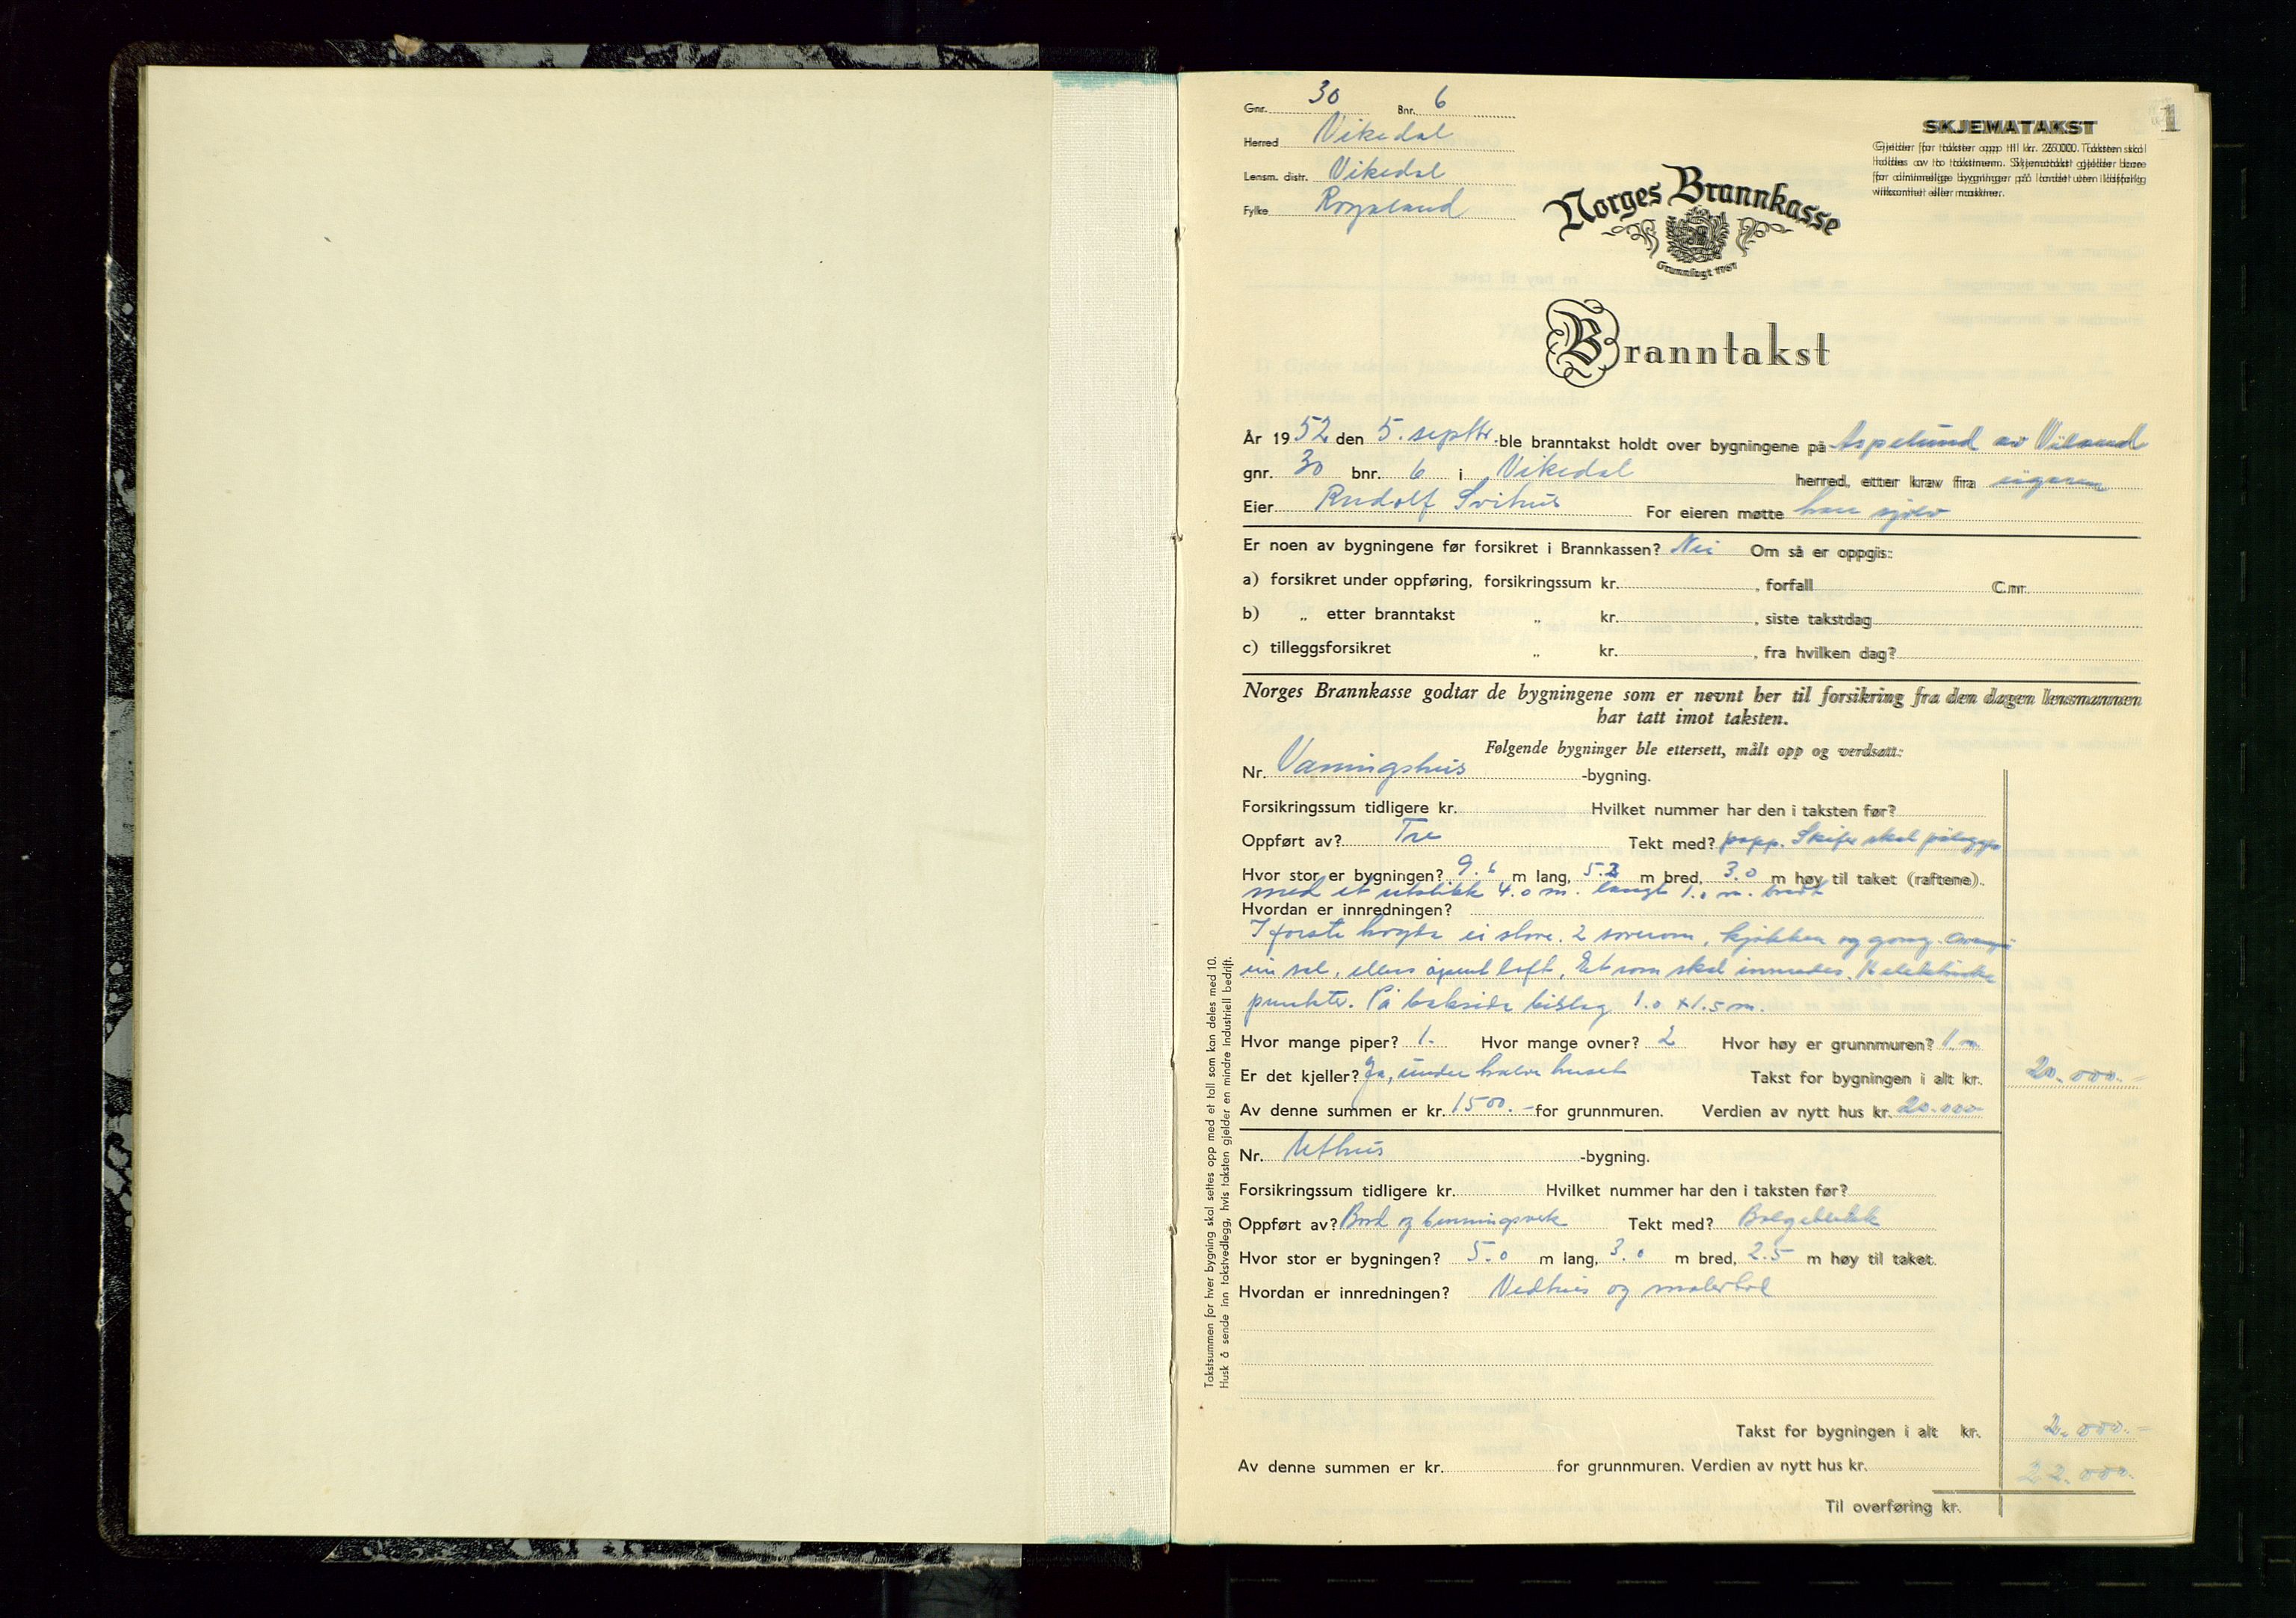 1
Gnr. 30 Bnr. 6
SKJEMATAKST
Gjelder for takster opp til kr. 25000. Taksten skal
holdes av to takstmenn. Skjematakst gjelder bare
for alminnelige bygninger på landet uten ildsfarlig
virksomhet eller maskiner.
Herred Vikedal
Lensm. distr. Vikedal
Fylke Rogaland
Norges Brannkasse
Grunnlagt 1767
Branntakst
År 1952 den 5. septbr. ble branntakst holdt over bygningene på Aspelund av Viland
gnr. 30 bnr. 6 i Vikedal herred, etter krav fra eigaren
Eier Rudolf Svihus For eieren møtte han sjølv
Er noen av bygningene før forsikret i Brannkassen? Nei Om så er oppgis:
a) forsikret under oppføring, forsikringssum kr. , forfall C.nr.
b) „ etter branntakst „ kr. , siste takstdag
c) tilleggsforsikret „ kr. , fra hvilken dag?
Norges Brannkasse godtar de bygningene som er nevnt her til forsikring fra den dagen lensmannen
har tatt imot taksten.
Følgende bygninger ble ettersett, målt opp og verdsatt:
Nr. Vaningshus -bygning.
Forsikringssum tidligere kr. Hvilket nummer har den i taksten før?
Oppført av? Tre Tekt med? papp. Skifer skal pålegges
Hvor stor er bygningen? 9.6 m lang, 5.3 m bred, 3.0 m høy til taket (raftene).
med et utstikk 4.0 m. langt 1.0 m. bredt
Hvordan er innredningen?
I første høgda ei stove. 2 soverom, kjøkken og gang.
ein sal, ellers åpent loft. Et rom skal innredes. elektriske
punkter. På bakside bislag 1.0 x 1.5 m.
Hvor mange piper? 1. Hvor mange ovner? 2 Hvor høy er grunnmuren? 1 m
Er det kjeller? Ja, under halve huset Takst for bygningen i alt kr. 20.000.-
Av denne summen er kr. 1500.- for grunnmuren. Verdien av nytt hus kr. 20.000
Nr. Uthus -bygning.
Forsikringssum tidligere kr. Hvilket nummer har den i taksten før?
Oppført av? Bord og binningsverk Tekt med? Bølgeblekk
Hvor stor er bygningen? 5.0 m lang, 3.0 m bred, 2.5 m høy til taket.
Hvordan er innredningen? Vedhus og
Takst for bygningen i alt kr. 2.000.-
Av denne summen er kr. for grunnmuren. Verdien av nytt hus kr. 22.000.
Til overføring kr.
Takstsummen for hver bygning skal settes opp med et tall som kan deles med 10.
Husk å sende inn takstvedlegg, hvis taksten gjelder en mindre industriell bedrift.